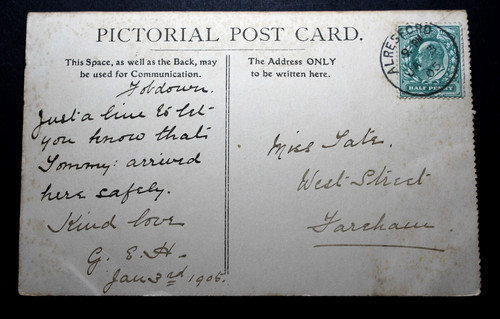 PICTORIAL POST CARD.
This Space, as well as the Back, may
be used for Communication.
The Address ONLY
to be written here.
Fobdown.
Just a line to let
you know that
Tommy: arrived
here safely.
Kind love
G. E. H.
Jan 3rd 1905.
Miss Tate.
West Street
Fareham.
ALRESFORD
HALF PENNY